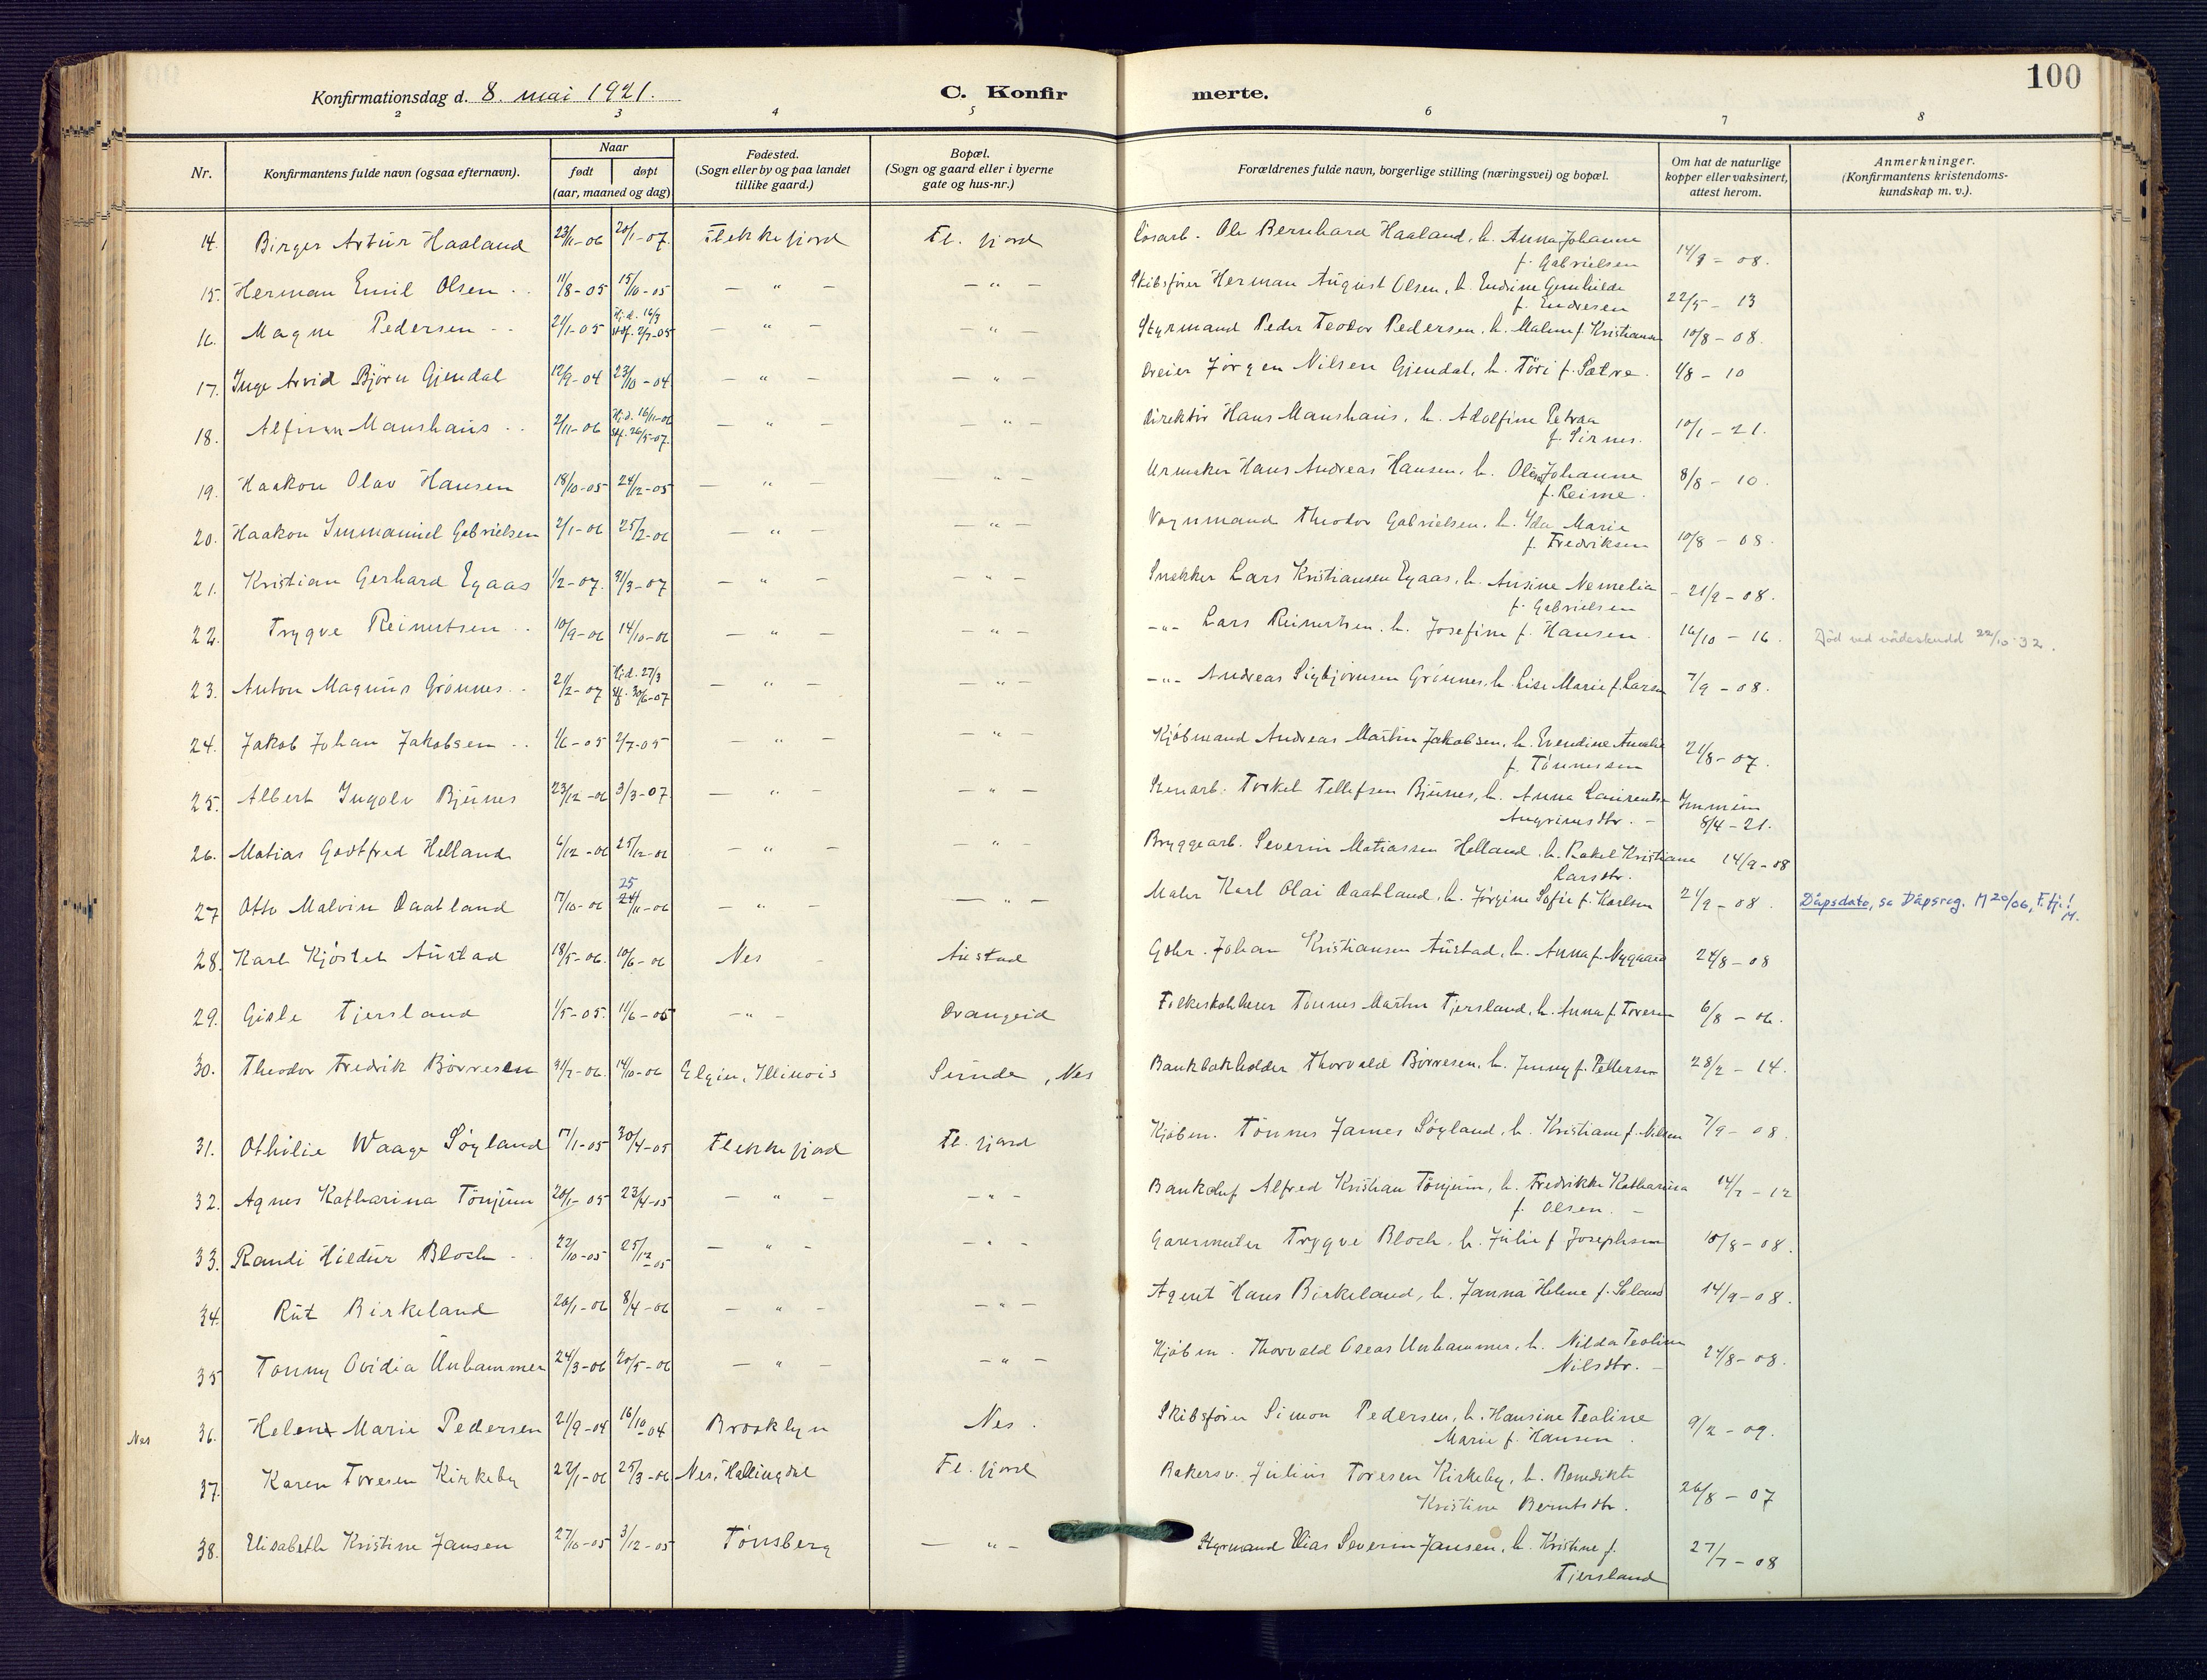 100
Konfirmationsdag d. 8. mai 1921. C. Konfirmerte.
2 3 4 5 6 7 8
Nr. Konfirmantens fulde navn (ogsaa efternavn). Naar født døpt (aar, maaned og dag) Fødested. (Sogn eller by og paa landet tillike gaard.) Bopæl. (Sogn og gaard eller i byerne gate og hus-nr.) Forældrenes fulde navn, borgerlige stilling (næringsvei) og bopæl. Om hat de naturlige kopper eller vaksinert, attest herom. Anmerkninger. (Konfirmantens kristendomskundskap m. v.).
14. Birger Artur Haaland 23/11-06 20/1-07. Flekkefjord Fl. fjord Løsarb. Ole Bernhard Haaland, h. Anna Johanne 14/9-08.
f. Gabrielsen
15. Herman Emil Olsen 11/8-05 15/10-05 — " — — " — Skibsfører Herman August Olsen, h. Endrine Gunhilde 22/5-13
f. Endresen
16. Magne Pedersen 21/1-05 Hj.d. 16/3 stf. 2/7-05 — " — — " — Styrmand Peder Teodor Pedersen, h. Malene f. Kristiansen 10/8-08.
17. Inge Arvid Bjørn Gjendal 12/9-04 23/10-04 — " — — " — Dreier Jørgen Nilsen Gjendal, h. Tori f. Sætre. 4/8-10
18. Alfinn Maushaus 2/11-06 Hj.d. 16/11-06 stf. 26/5-07. — " — — " — Direktør Hans Maushaus, h. Adolfine Petraa 10/1-21.
f. Sirnes.
19. Haakon Olav Hansen 18/10-05 24/12-05 — " — — " — Urmaker Hans Andreas Hansen, h. Olena Johanne 8/8-10.
f. Reime.
20. Haakon Immanuel Gabrielsen 2/1-06 25/2-06 — " — — " — Vognmand Theodor Gabrielsen, h. Ida Marie 10/8-08.
f. Fredriksen
21. Kristian Gerhard Egaas 1/2-07. 31/3-07 — " — — " — Snekker Lars Kristiansen Egaas, h. Ansine Nemelia 21/9-08.
f. Gabrielsen
22. Trygve Reinertsen 10/9-06 14/10-06 — " — — " — -"- Lars Reinertsen, h. Josefine f. Hansen 16/10-16. Død ved vådeskudd 22/10-32.
23. Anton Magnus Grønnes 21/2-07 Hj.d. 27/3 stf. 30/6-07 — " — — " — -"- Andreas Sigbjørnsen Grønnes, h. Lise Marie f. Larsen 7/9-08.
24. Jakob Johan Jakobsen 1/6-05 2/7-05 — " — — " — Kjøbmand Andreas Martin Jakobsen, h. Evendine Amalie 21/8-07.
f. Tønnessen
25. Albert Ingolv Bjunes 23/12-06 3/3-07. — " — — " — Stenarb. Torkel Tellefsen Bjunes, h. Anna Laurentse Immun
Angrimsdtr. 8/4-21.
26. Matias Godtfred Helland 6/12-06 25/12-06 — " — — " — Bryggearb. Severin Matiassen Helland, h. Rakel Kristiane 14/9-08
Larsdtr.
27 Otto Malvin Daatland 17/10-06 25 24/11-06 — " — — " — Maler Karl Olai Daatland, h. Jørgine Sofie f. Karlsen 21/9-08. Dåpsdato, se Dåpsreg. M 20/06, F.fj.!
M.
28. Karl Kjøstel Austad 18/5-06. 10/6-06 Nes Austad Gbr. Johan Kristiansen Austad, h. Anna f. Nygaard 24/8-08
29. Gisle Tjersland 1/5-05. 11/6-05 -"- Drangeid Folkeskolelærer Tønnes Martin Tjersland, h. Anna f. Toresen 6/8-06.
30. Theodor Fredrik Børresen 31/7-06. 14/10-06 Elgin, Illinois Sunde, Nes Bankbokholder Thorvald Børresen, h. Jenny f. Pettersen 28/2-14.
31. Othilie Waage Søyland 17/1-05 30/4-05 Flekkefjord Fl. fjord Kjøbm. Tønnes James Søyland, h. Kristiane f. Nilsen 7/9-08.
32. Agnes Katharina Tonjum 20/1-05 23/4-05 — " — — " — Bankchef Alfred Kristian Tonjum, h. Fredrikke Katharina 14/7-12
f. Olsen.
33. Randi Hildur Bloch 22/10-05 25/12-05 — " — — " — Garvermester Trygve Bloch, h. Julie f. Josephsen 10/8-08.
34. Rut Birkeland 20/1-06 8/4-06 — " — — " — Agent Hans Birkeland, h. Janna Helene f. Soland 14/9-08.
35 Tonny Ovidia Unhammer 24/3-06 20/5-06 — " — — " — Kjøbm. Thorvald Oseas Unhammer, h. Nilda Teoline 24/8-08.
Nilsdtr.
Nes 36. Helene Marie Pedersen 21/9-04 16/10-04 Brooklyn Nes. Skibsfører Simon Pedersen, h. Hansine Teoline 9/2-09.
Marie f. Hansen.
37. Karen Toresen Kirkeby 22/1-06 25/3-06 Nes, Hallingdal Fl. fjord Bakersv. Julius Toresen Kirkeby, h. Benedikte 26/8-07
Kristine Berntsdtr.
38. Elisabeth Kristine Jansen 27/10-05 3/12-05 Tønsberg — " — Styrmand Elias Severin Jansen, h. Kristine f. 27/7-08
Tjersland